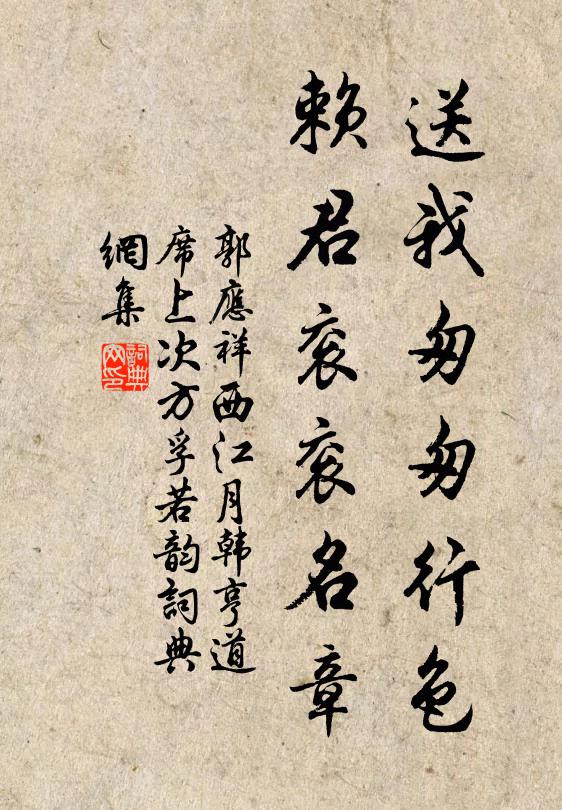 送我匆匆行色
賴君衮衮名章
郭應祥西江月韩亨道
席上次方孚若韵詞典
網集
詞典
网印